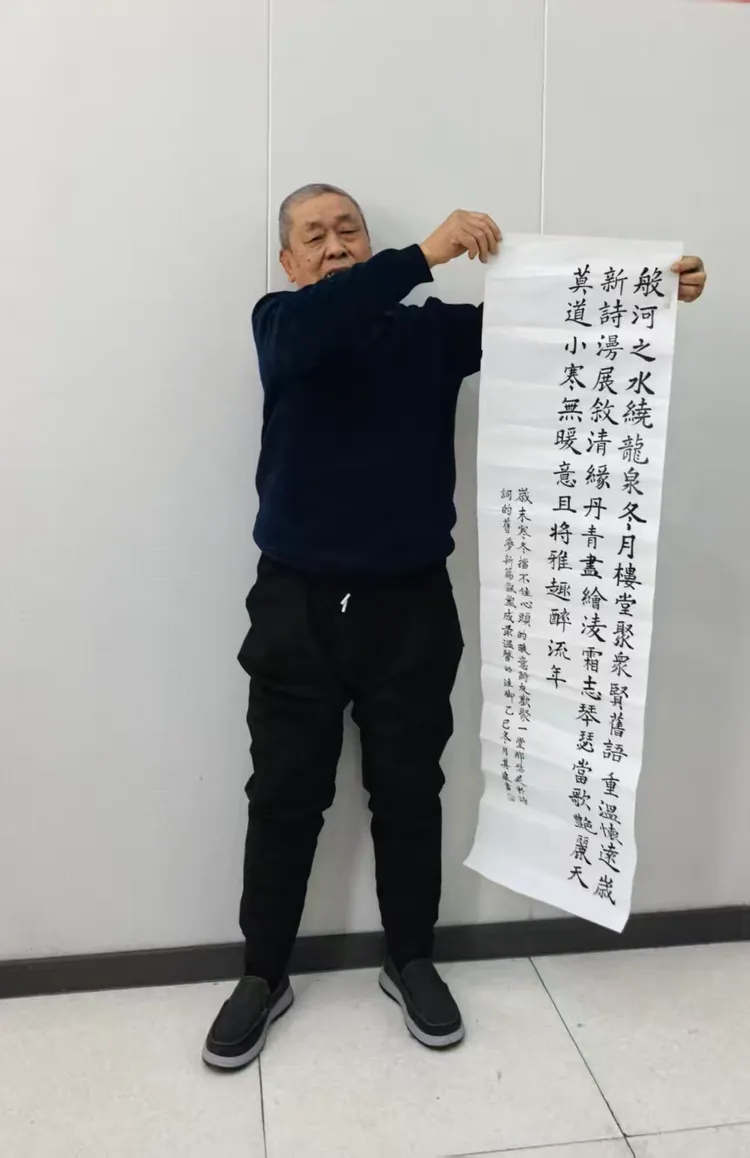 般河之水繞龍泉冬月樓堂聚衆賢舊語重溫懷遠歲
新詩漫展敘清緣丹青畫繪凌霜志琴瑟當歌艷麗天
莫道小寒無暖意且將雅趣醉流年
歲末寒冬擋不住心頭的暖意詩友歡聚一堂那些
詞的舊夢新篇就成最溫馨的注腳乙巳冬月其